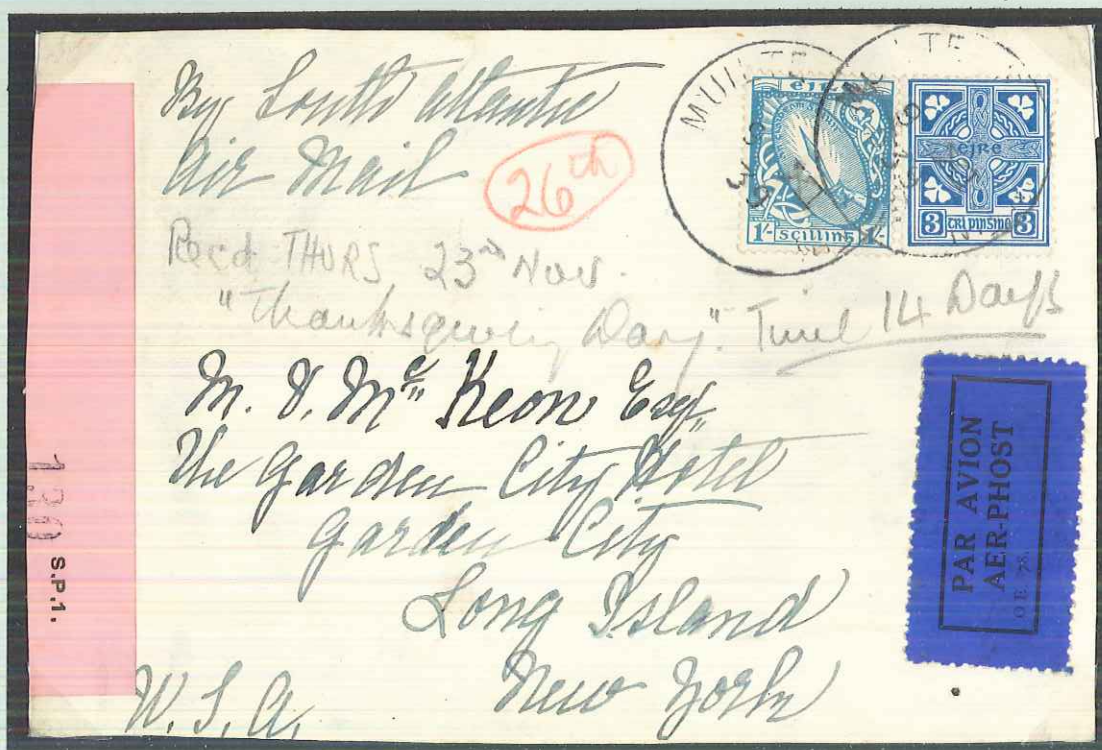 By South Atlantic
Air Mail
26th
Recd THURS 23rd Nov.
"Thanksgiving Day". Time 14 Days
M. V. Mc Keon Esqr
The Garden City Hotel
Garden City
Long Island
New York
U.S.A.
éire
1/- scilling 1/-
éire
3 trí pinsine 3
PAR AVION
AER-PHOST
OE 78.
130 S.P.1.